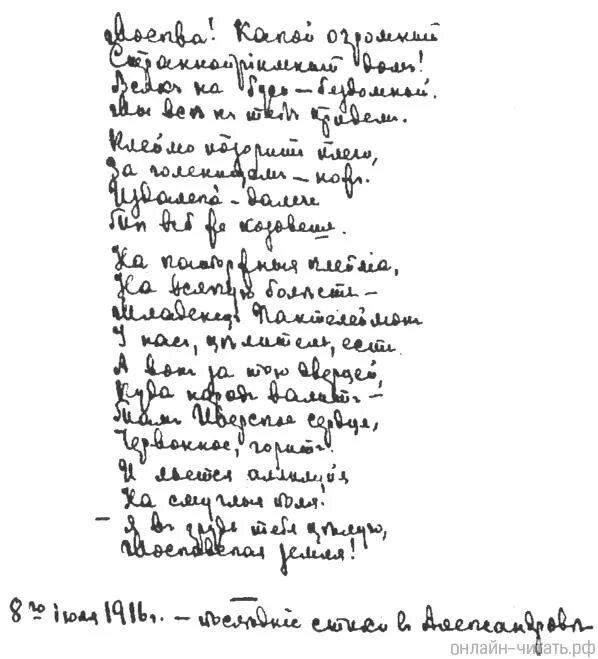 Москва! Какой огромный
Странноприимный домъ!
Всякъ на Руси — бездомный.
Мы всѣ къ тебѣ придемъ.
Клеймо позоритъ плечи,
За голенищемъ — ножъ.
Издалека́ — далече
Ты всё же позовешь.
На каторжныя клейма,
На всякую болѣсть —
Младенецъ Пантелеймонъ
У насъ, цѣлитель, есть.
А вонъ за тою дверцей,
Куда народъ валитъ —
Тамъ Иверское сердце,
Червонное, горитъ.
И льется аллилуйя
На смуглыя поля.
— Я въ грудь тебя цѣлую,
Московская земля!
8го iюля 1916г. — послѣднiе стихи в Александровѣ
онлайн-читать.рф